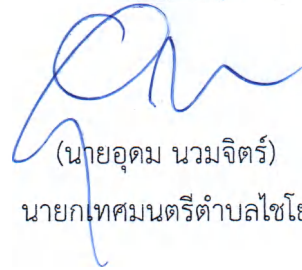 (นายอุดม นวมจิตร์)
นายกเทศมนตรีตำบลไชโย